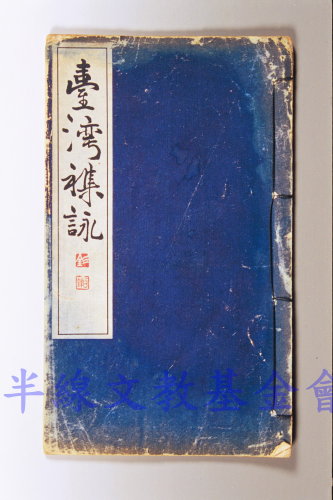 臺湾襍詠
半線文教基金會